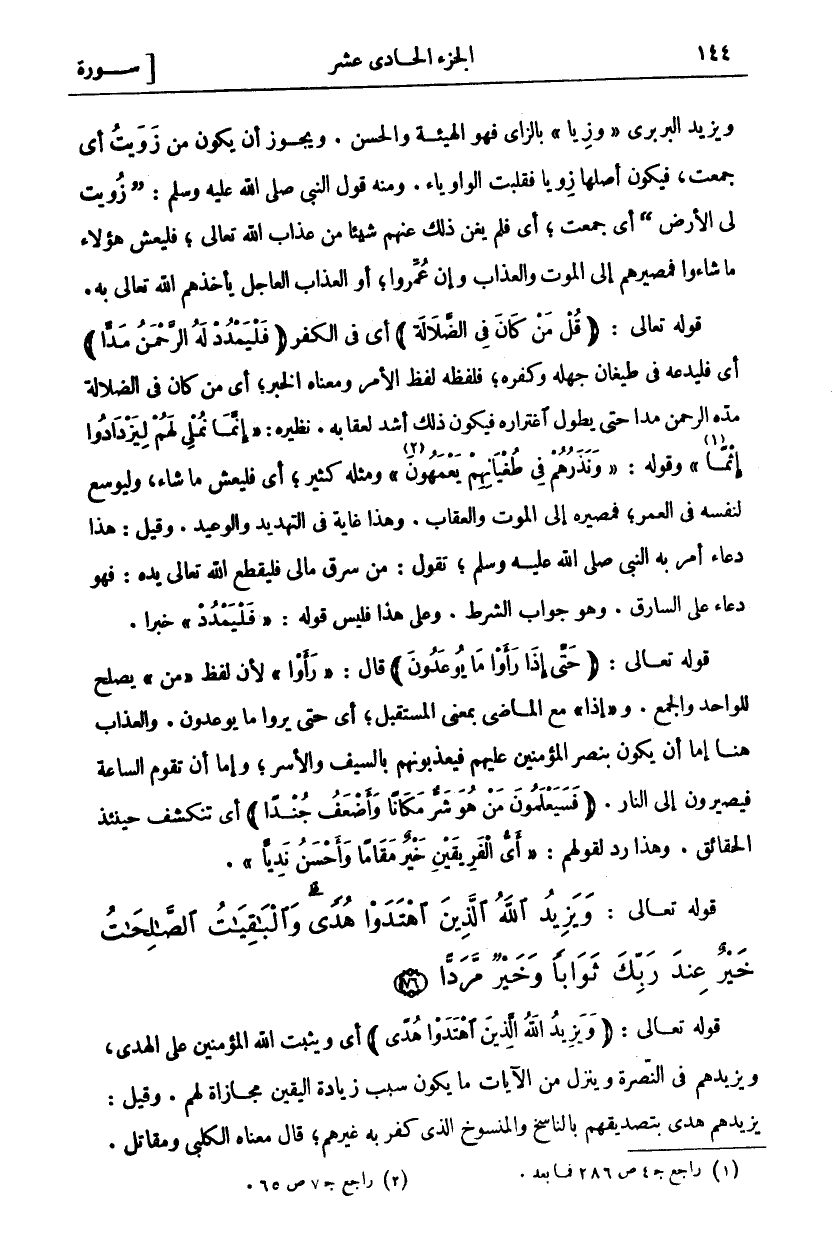 ١٤٤
الجزء الحادى عشر
[ ســورة
ويزيد البربرى « وزِيا » بالزاى فهو الهيئة والحسن . ويجوز أن يكون من زَوَيتُ أى
جمعت، فيكون أصلها زِويا فقلبت الواو ياء . ومنه قول النبى صلى الله عليه وسلم : ” زُويت
لى الأرض “ أى جمعت ؛ أى فلم يغن ذلك عنهم شيئا من عذاب الله تعالى ؛ فليعش هؤلاء
ما شاءوا فمصيرهم إلى الموت والعذاب وإن عُمِّروا؛ أو العذاب العاجل يأخذهم الله تعالى به.
قوله تعالى : ﴿ قُلْ مَنْ كَانَ فِى الضَّلَالَةِ ﴾ أى فى الكفر ﴿ فَلْيَمْدُدْ لَهُ الرَّحْمَنُ مَدًّا ﴾
أى فليدعه فى طيغان جهله وكفره؛ فلفظه لفظ الأمر ومعناه الخبر؛ أى من كان فى الضلالة
مدّه الرحمن مدا حتى يطول اغتراره فيكون ذلك أشد لعقابه . نظيره: « إِنَّمَا نُمْلِى لَهُمْ لِيَزْدَادُوا
إِثْمًا (١) » وقوله : « وَنَذَرُهُمْ فِى طُغْيَانِهِمْ يَعْمَهُونَ (٢) » ومثله كثير ؛ أى فليعش ما شاء، وليوسع
لنفسه فى العمر؛ فمصيره إلى الموت والعقاب . وهذا غاية فى التهديد والوعيد . وقيل : هذا
دعاء أمر به النبى صلى الله عليه وسلم ؛ تقول : من سرق مالى فليقطع الله تعالى يده : فهو
دعاء على السارق . وهو جواب الشرط . وعلى هذا فليس قوله : « فَلْيَمْدُدْ » خبرا .
قوله تعالى : ﴿ حَتَّى إِذَا رَأَوْا مَا يُوعَدُونَ ﴾ قال : « رَأَوْا » لأن لفظ «من» يصلح
للواحد والجمع . و «إذا» مع الماضى بمعنى المستقبل؛ أى حتى يروا ما يوعدون . والعذاب
هنا إما أن يكون بنصر المؤمنين عليهم فيعذبونهم بالسيف والأسر ؛ وإما أن تقوم الساعة
فيصيرون إلى النار . ﴿ فَسَيَعْلَمُونَ مَنْ هُوَ شَرٌّ مَكَانًا وَأَضْعَفُ جُنْدًا ﴾ أى تنكشف حينئذ
الحقائق . وهذا رد لقولهم : « أَىُّ الْفَرِيقَيْنِ خَيْرٌ مَقَامًا وَأَحْسَنُ نَدِيًّا » .
قوله تعالى : وَيَزِيدُ ٱللَّهُ ٱلَّذِينَ ٱهْتَدَوْا۟ هُدًى ۗ وَٱلْبَـٰقِيَـٰتُ ٱلصَّـٰلِحَـٰتُ
خَيْرٌ عِندَ رَبِّكَ ثَوَابًا وَخَيْرٌ مَّرَدًّا ﴿٧٦﴾
قوله تعالى : ﴿ وَيَزِيدُ اللهُ الَّذِينَ اهْتَدَوْا هُدًى ﴾ أى ويثبت الله المؤمنين على الهدى،
ويزيدهم فى النّصرة وينزل من الآيات ما يكون سبب زيادة اليقين مجازاة لهم . وقيل :
يزيدهم هدى بتصديقهم بالناسخ والمنسوخ الذى كفر به غيرهم؛ قال معناه الكلبى ومقاتل .
(١) راجع ج ٤ ص ٢٨٦ فما بعد .
(٢) راجع ج ٧ ص ٦٥ .